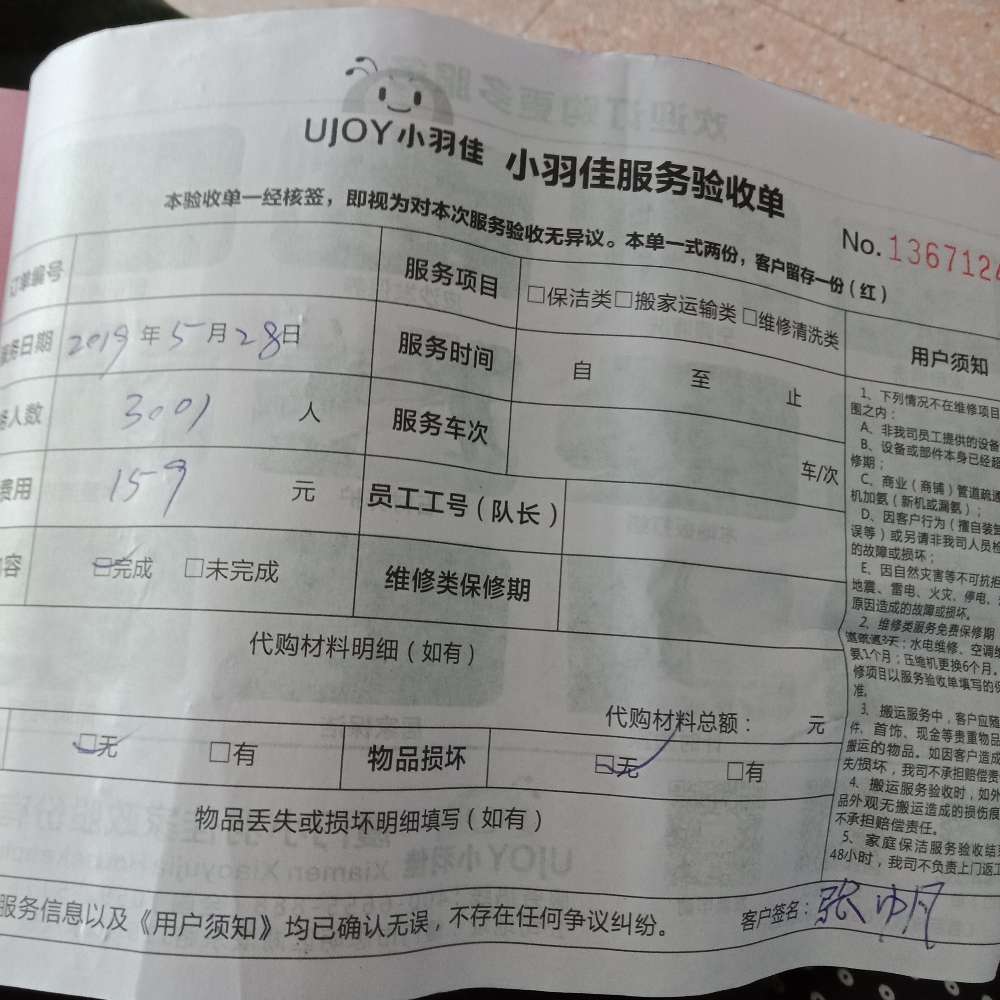 UJOY小羽佳 小羽佳服务验收单
本验收单一经核签，即视为对本次服务验收无异议。本单一式两份，客户留存一份（红）
No.1367124
订单编号 服务项目 □保洁类□搬家运输类□维修清洗类
务日期 2019年5月28日 服务时间 自 至 止
人数 3001 人 服务车次 车/次
费用 159 元 员工工号（队长）
容 □完成 □未完成 维修类保修期
代购材料明细（如有）
代购材料总额： 元
□无 □有 物品损坏 □无 □有
物品丢失或损坏明细填写（如有）
服务信息以及《用户须知》均已确认无误，不存在任何争议纠纷。 客户签名：张
用户须知
1、下列情况不在维修项目
围之内：
A、非我司员工提供的设备
B、设备或部件本身已经超
修期；
C、商业（商铺）管道疏通
机加氨（新机或漏氨）；
D、因客户行为（擅自装卸
误等）或另请非我司人员检
的故障或损坏；
E、因自然灾害等不可抗拒
地震、雷电、火灾、停电、
原因造成的故障或损坏。
2、维修类服务免费保修期
道疏通3天；水电维修、空调维
氨1个月；压缩机更换6个月。
修项目以服务验收单填写的保
准。
3、搬运服务中，客户应随
件、首饰、现金等贵重物品
搬运的物品。如因客户造成
失/损坏，我司不承担赔偿责
4、搬运服务验收时，如外
品外观无搬运造成的损伤痕
不承担赔偿责任。
5、家庭保洁服务验收结束
48小时，我司不负责上门返工